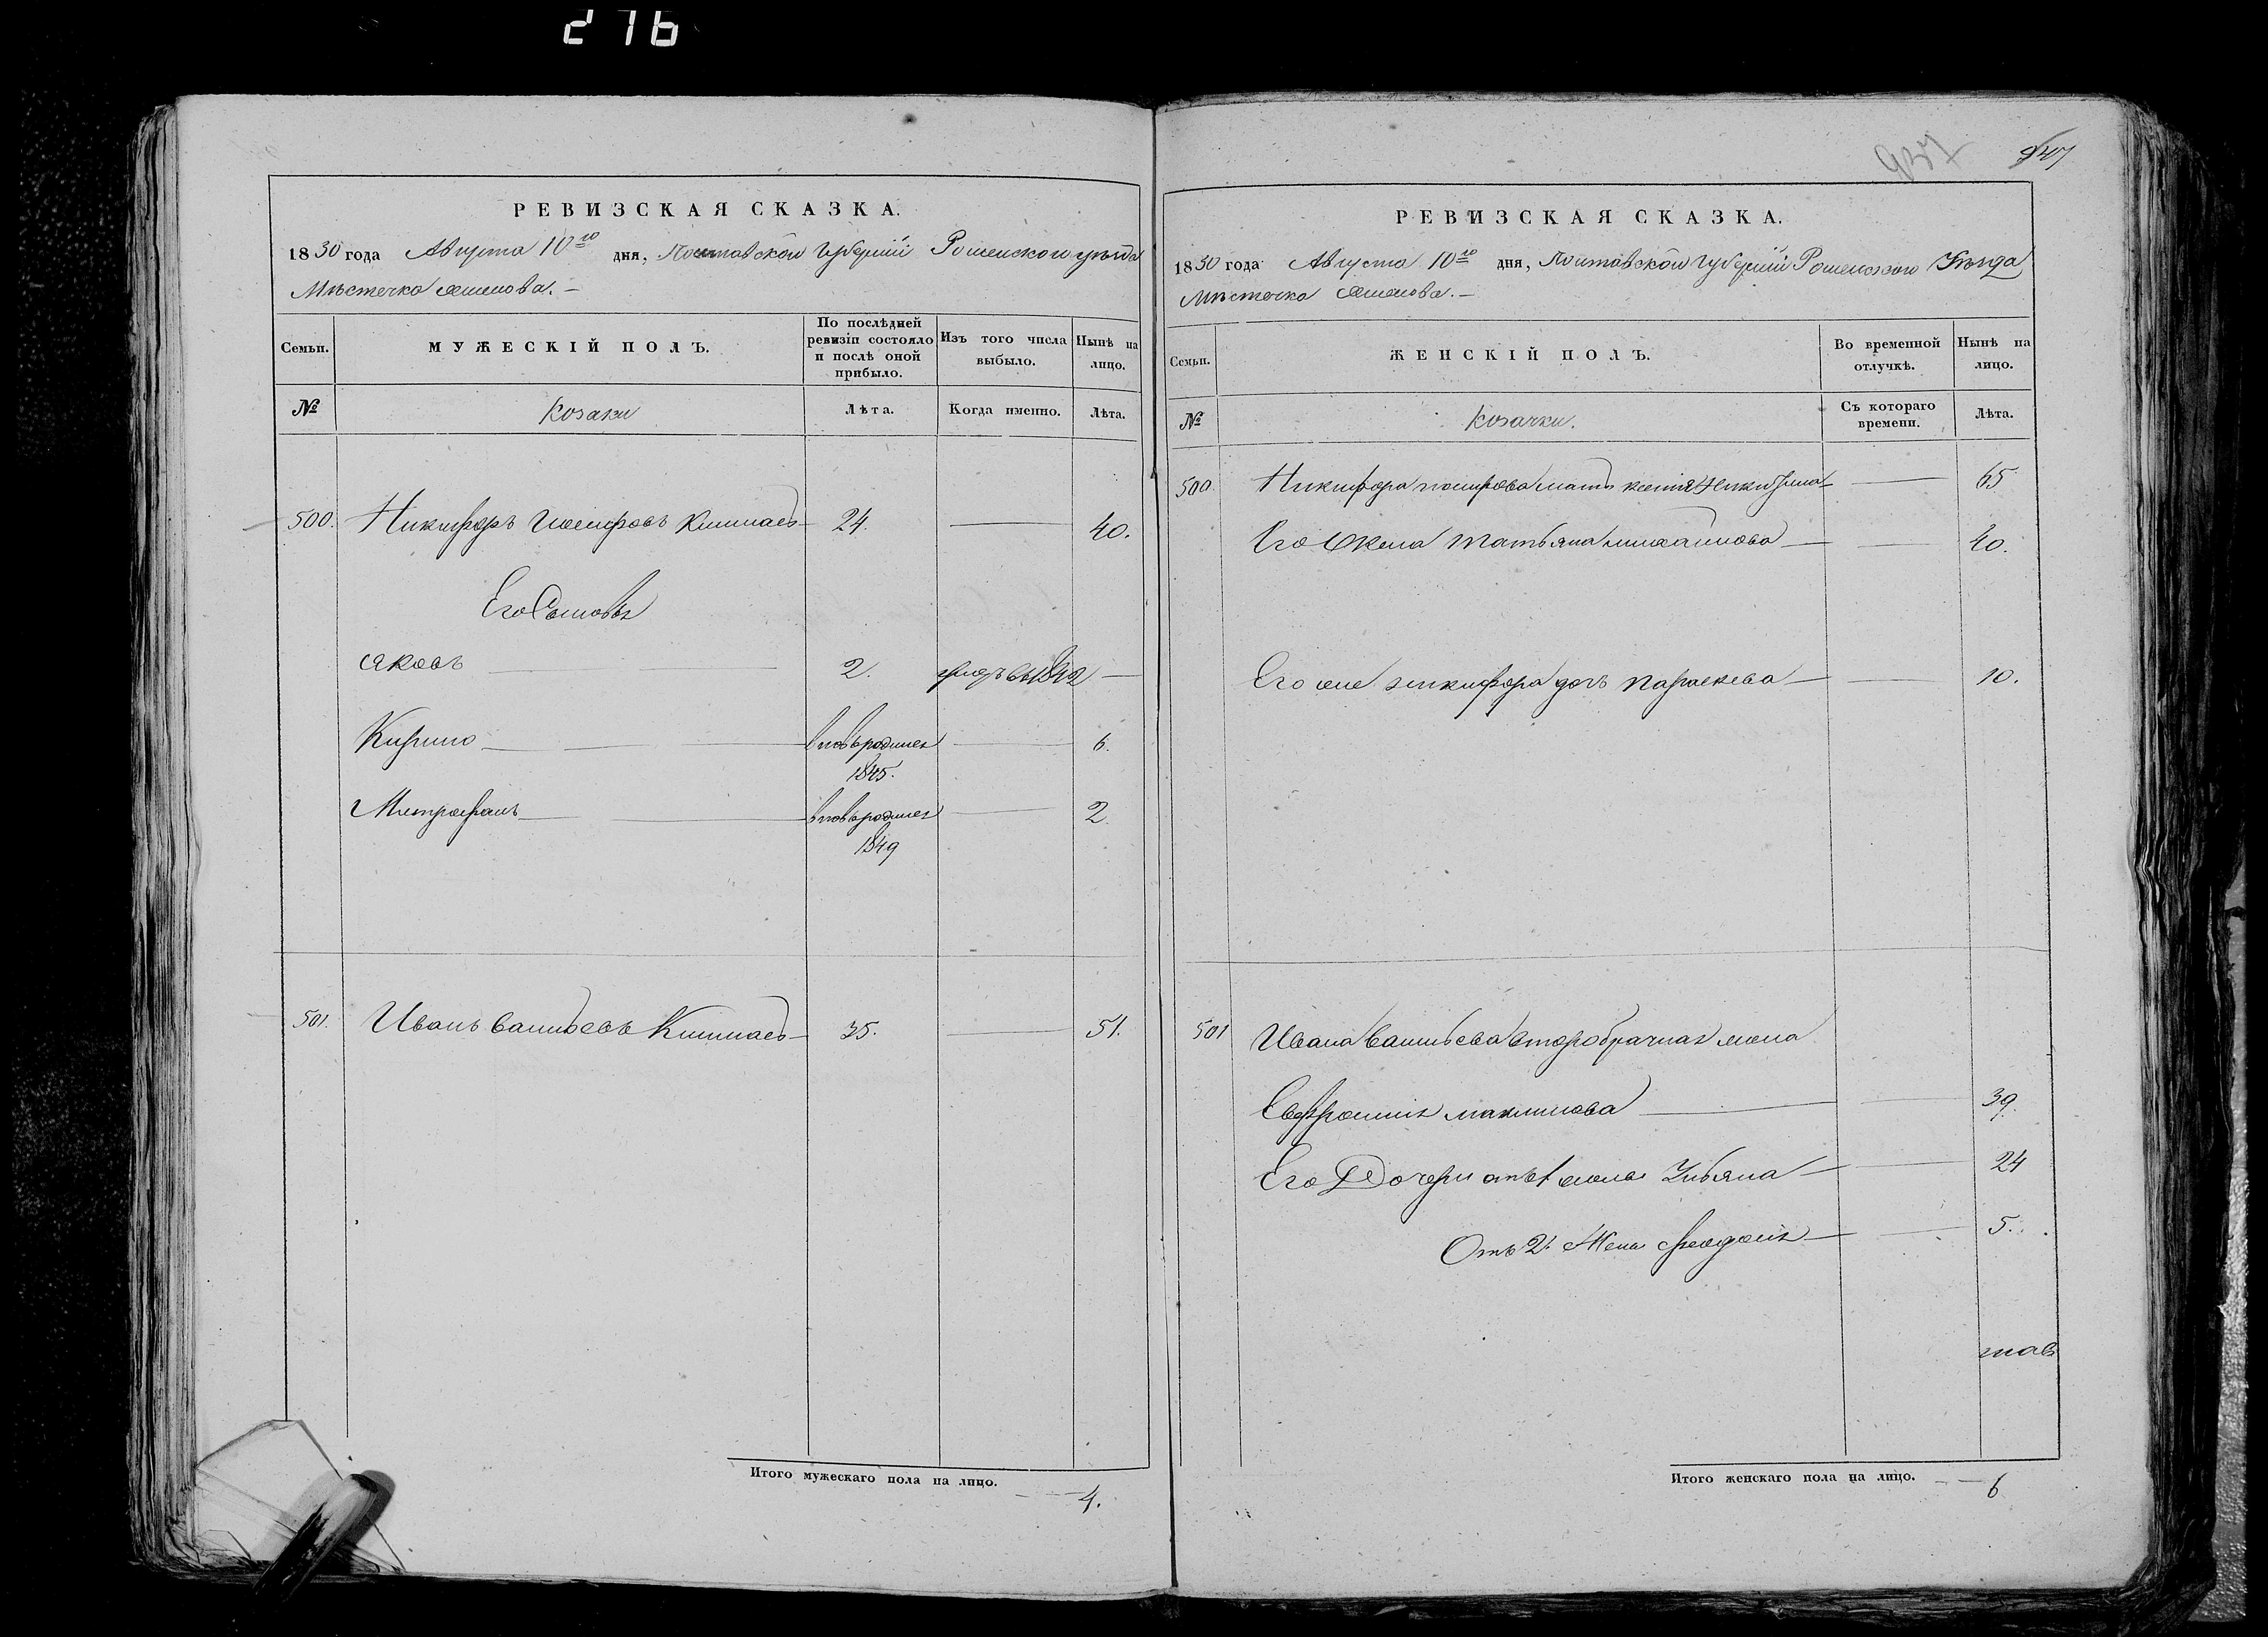 216
РЕВИЗСКАЯ СКАЗКА.
1850 года Августа 10го дня, Полтавской Губернiи Роменского уѣзда
Мѣстечка
Семьи.
МУЖЕСКІЙ ПОЛЪ.
По послѣдней ревизіи состояло и послѣ оной прибыло.
Изъ того числа выбыло.
Нынѣ на лицо.
№
Козаки
Лѣта.
Когда именно.
Лѣта.
500. Никифоръ 24. 40.
Его Сыновья
Яковъ 2. 1842
Кирило вновьродился 6.
1845.
Митрофанъ вновьродился 2
1849
501. Иванъ Васильевъ 35. 51.
Итого мужескаго пола на лицо. 4.
947
РЕВИЗСКАЯ СКАЗКА.
1850 года Августа 10го дня, Полтавской Губернiи Роменского Уѣзда
Мѣстечка
Семьи.
ЖЕНСКІЙ ПОЛЪ.
Во временной отлучкѣ.
Нынѣ на лицо.
№
Козачки.
Съ котораго времени.
Лѣта.
500. Никифора мать 65
Его Жена Татьяна Михайлова 40.
Его же Никифора дочь Параскева 10.
501 Ивана Васильева второбрачная жена
Евфросинiя 39.
Его Дочери отъ 1 жены Ульяна 24
Отъ 2. Жены Феодосiя 5.
Итого женскаго пола на лицо. 6